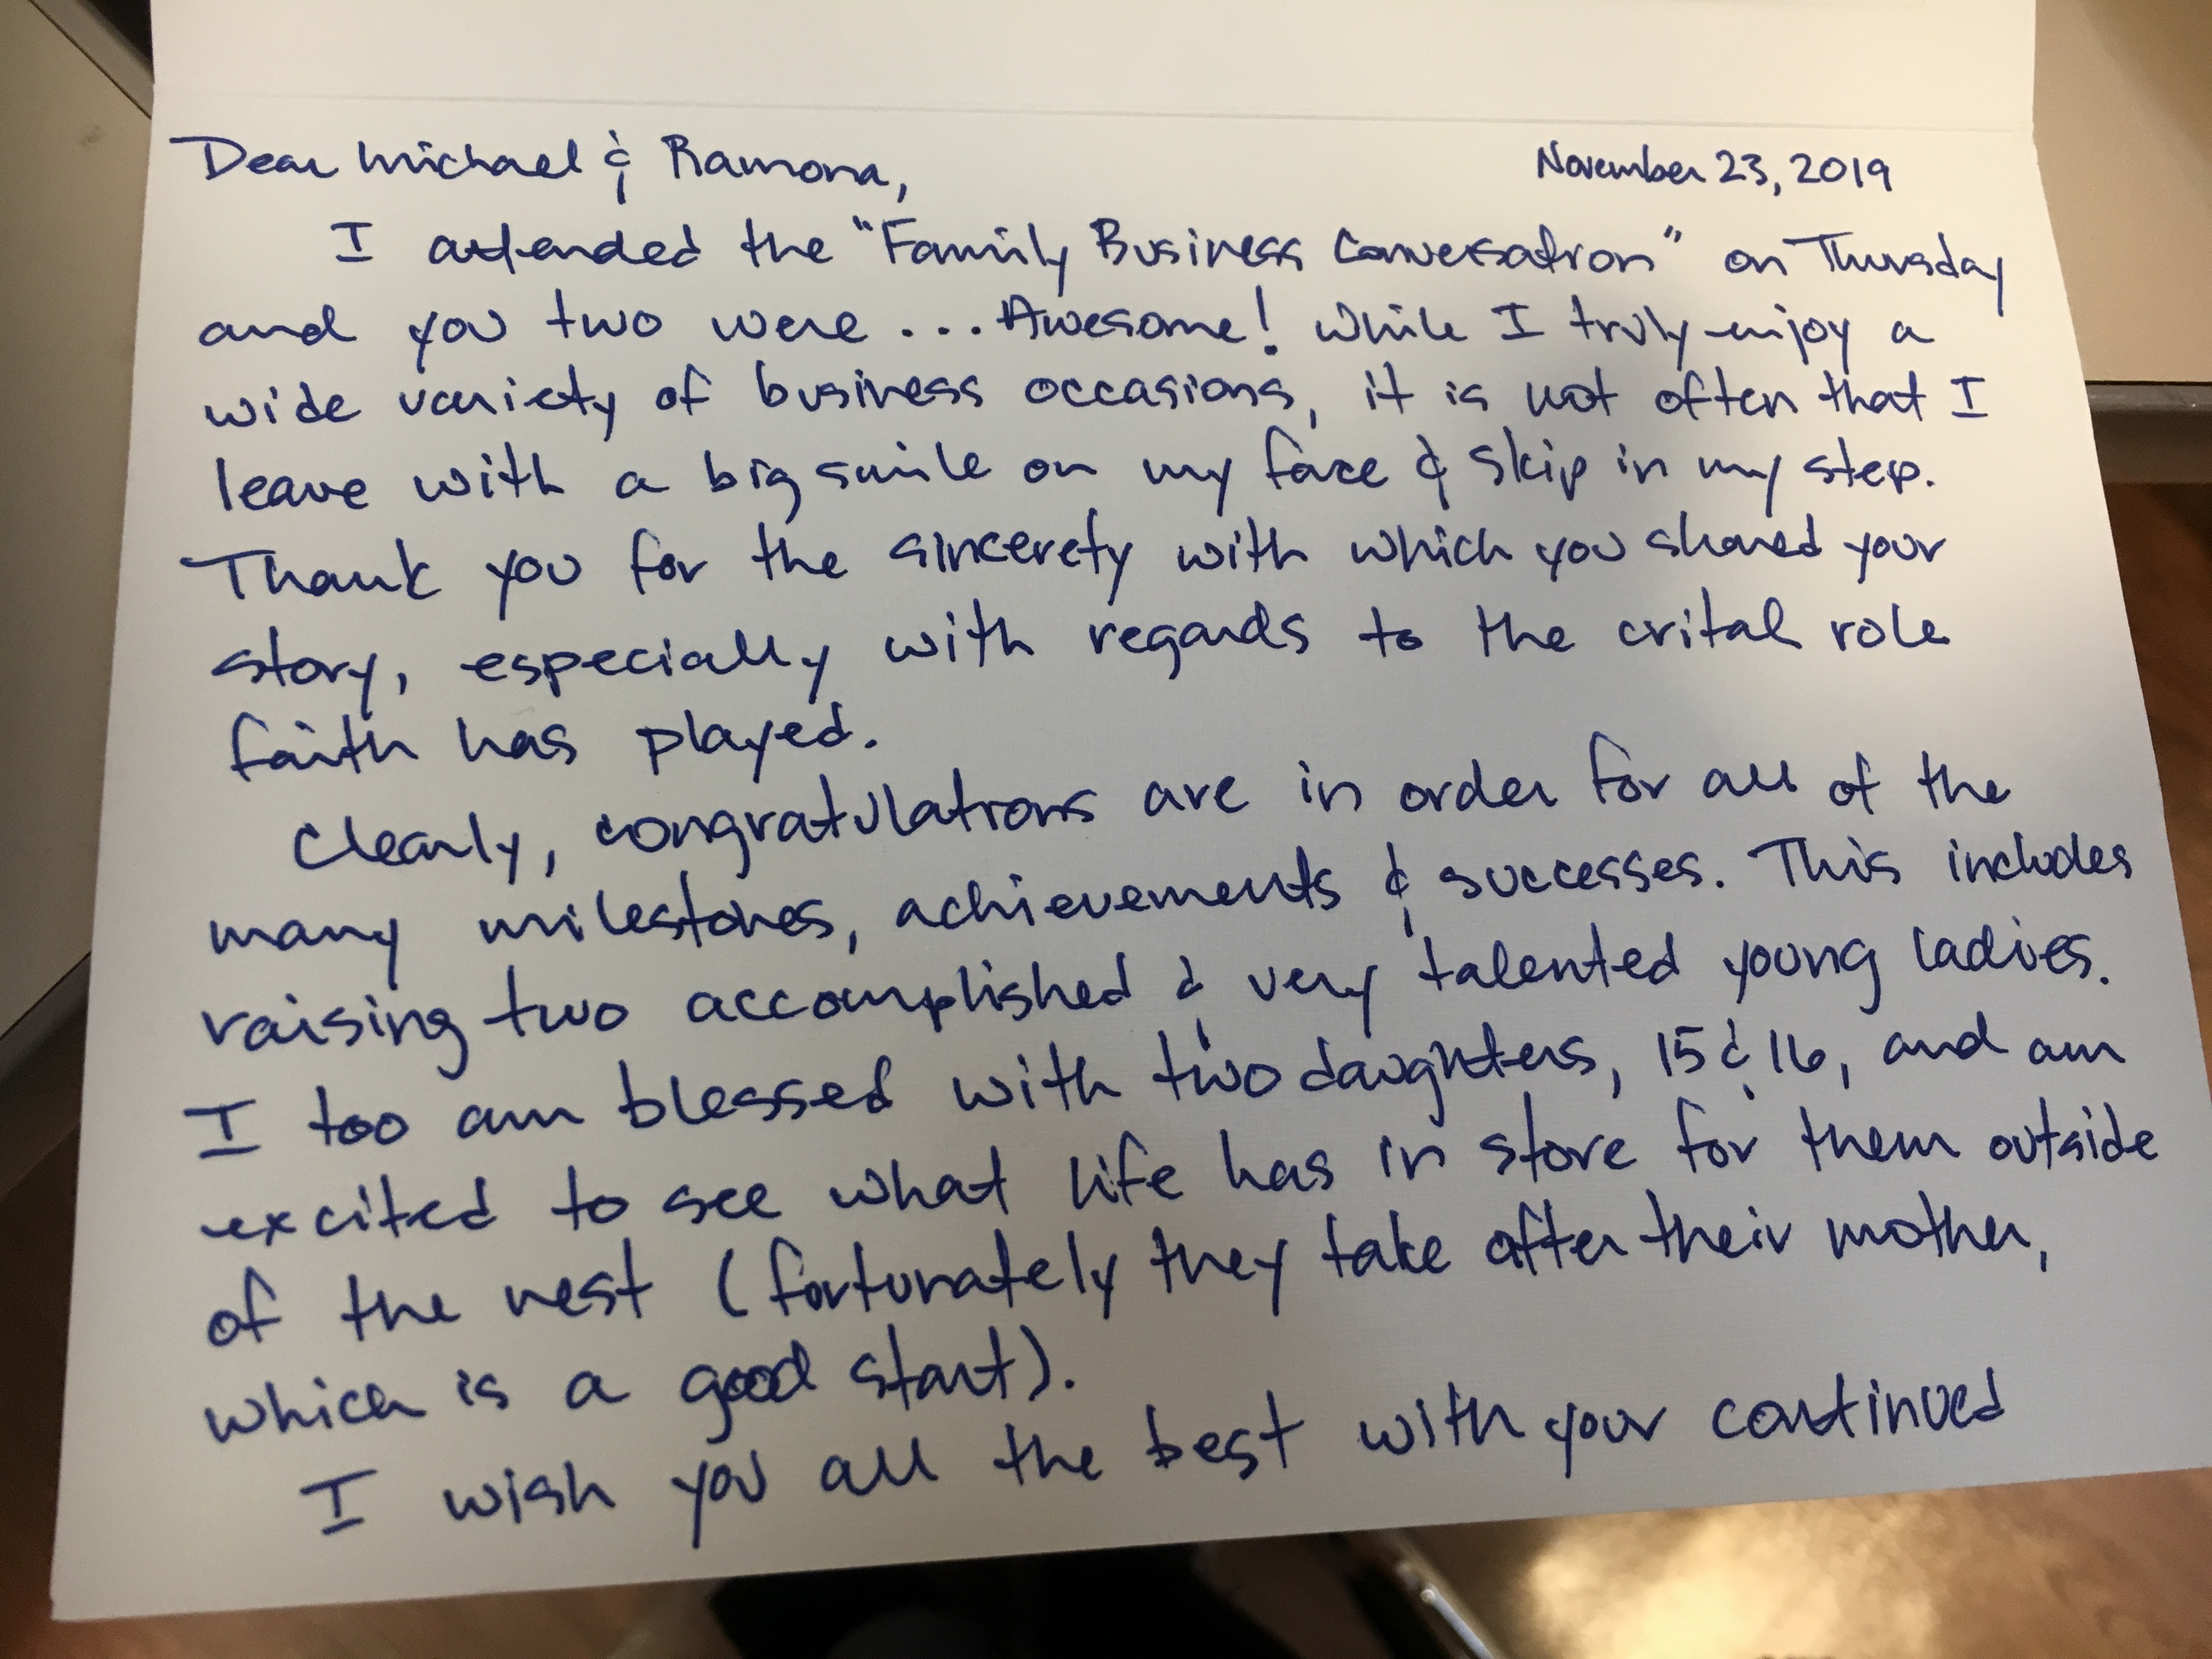 Dear Michael & Ramona,
November 23, 2019
I attended the "Family Business Conversation" on Thursday
and you two were ... Awesome! While I truly enjoy a
wide variety of business occasions, it is not often that I
leave with a big smile on my face & skip in my step.
Thank you for the sincerety with which you shared your
story, especially with regards to the crital role
faith has played.
Clearly, congratulations are in order for all of the
many milestones, achievements & successes. This includes
raising two accomplished & very talented young ladies.
I too am blessed with two daughters, 15 & 16, and am
excited to see what life has in store for them outside
of the nest (fortunately they take after their mother,
which is a good start).
I wish you all the best with your continued